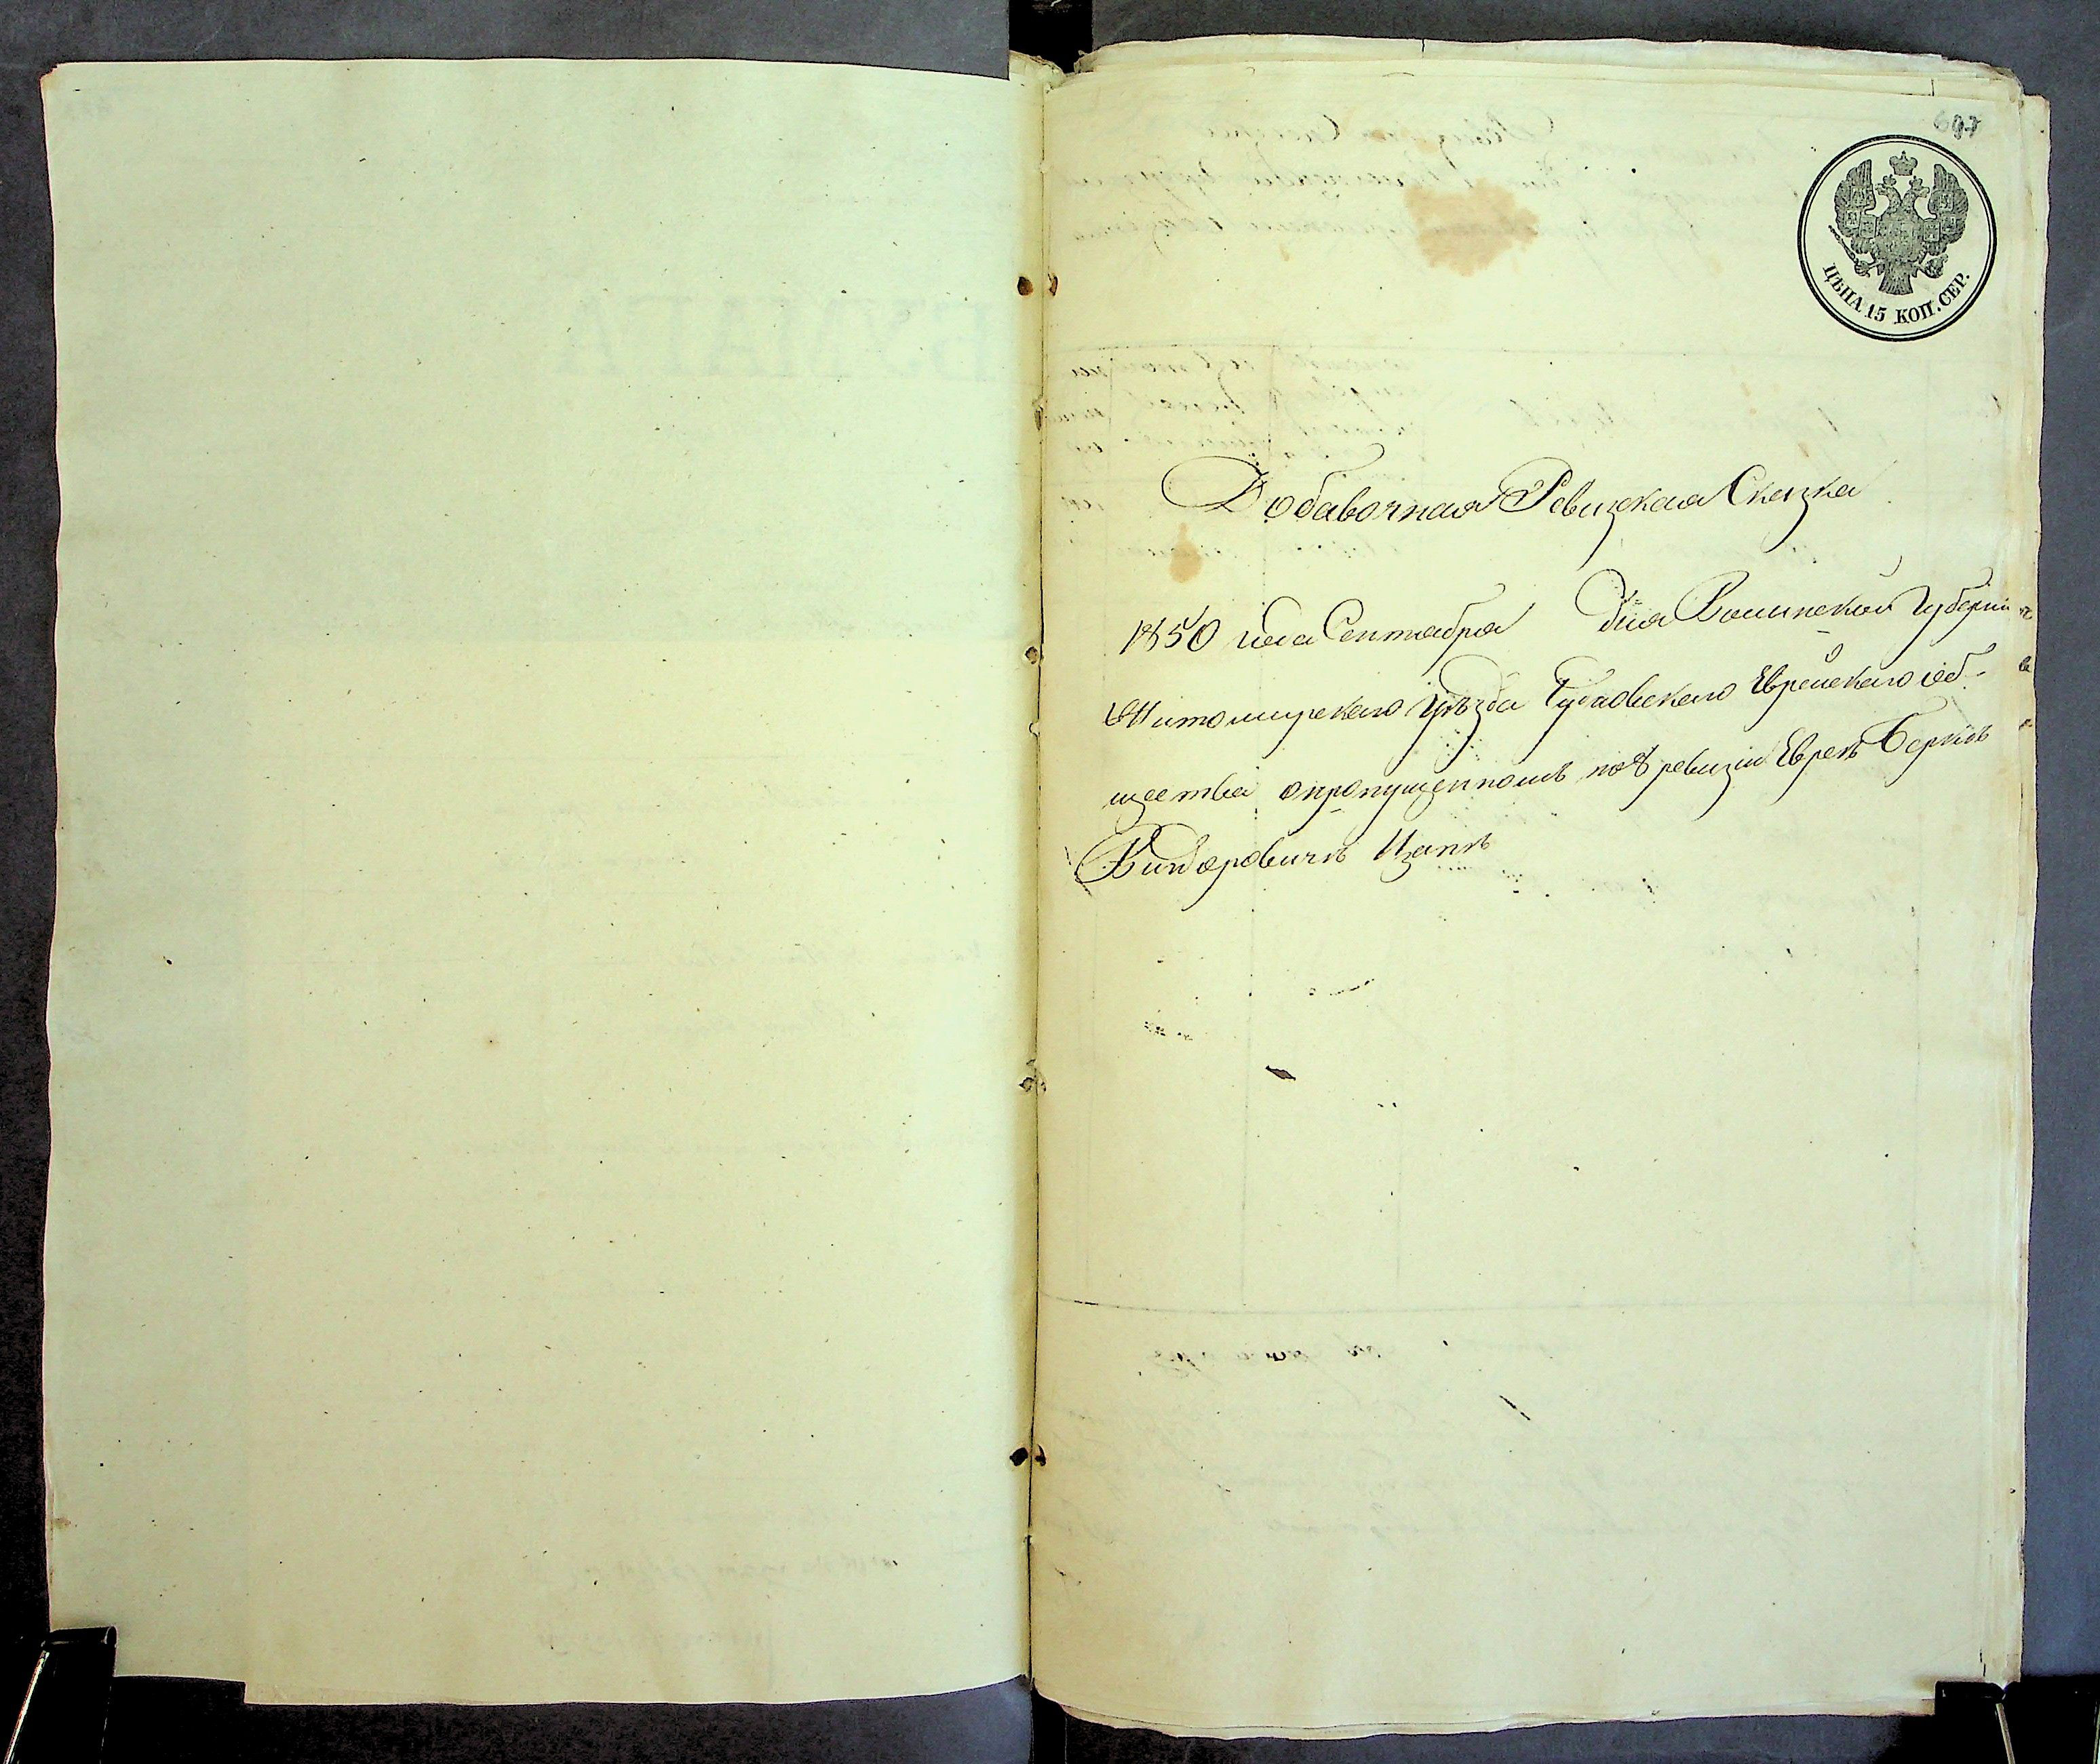 697
ЦѢНА 15 КОП. СЕР.
Добавочная Ревизская Сказка
1850 года Сентября дня Волынской Губерніи
Житомирскаго Уѣзда Чудновскаго Еврейскаго об-
щества о пропущенномъ по 8 ревизіи Евреѣ Беркѣ